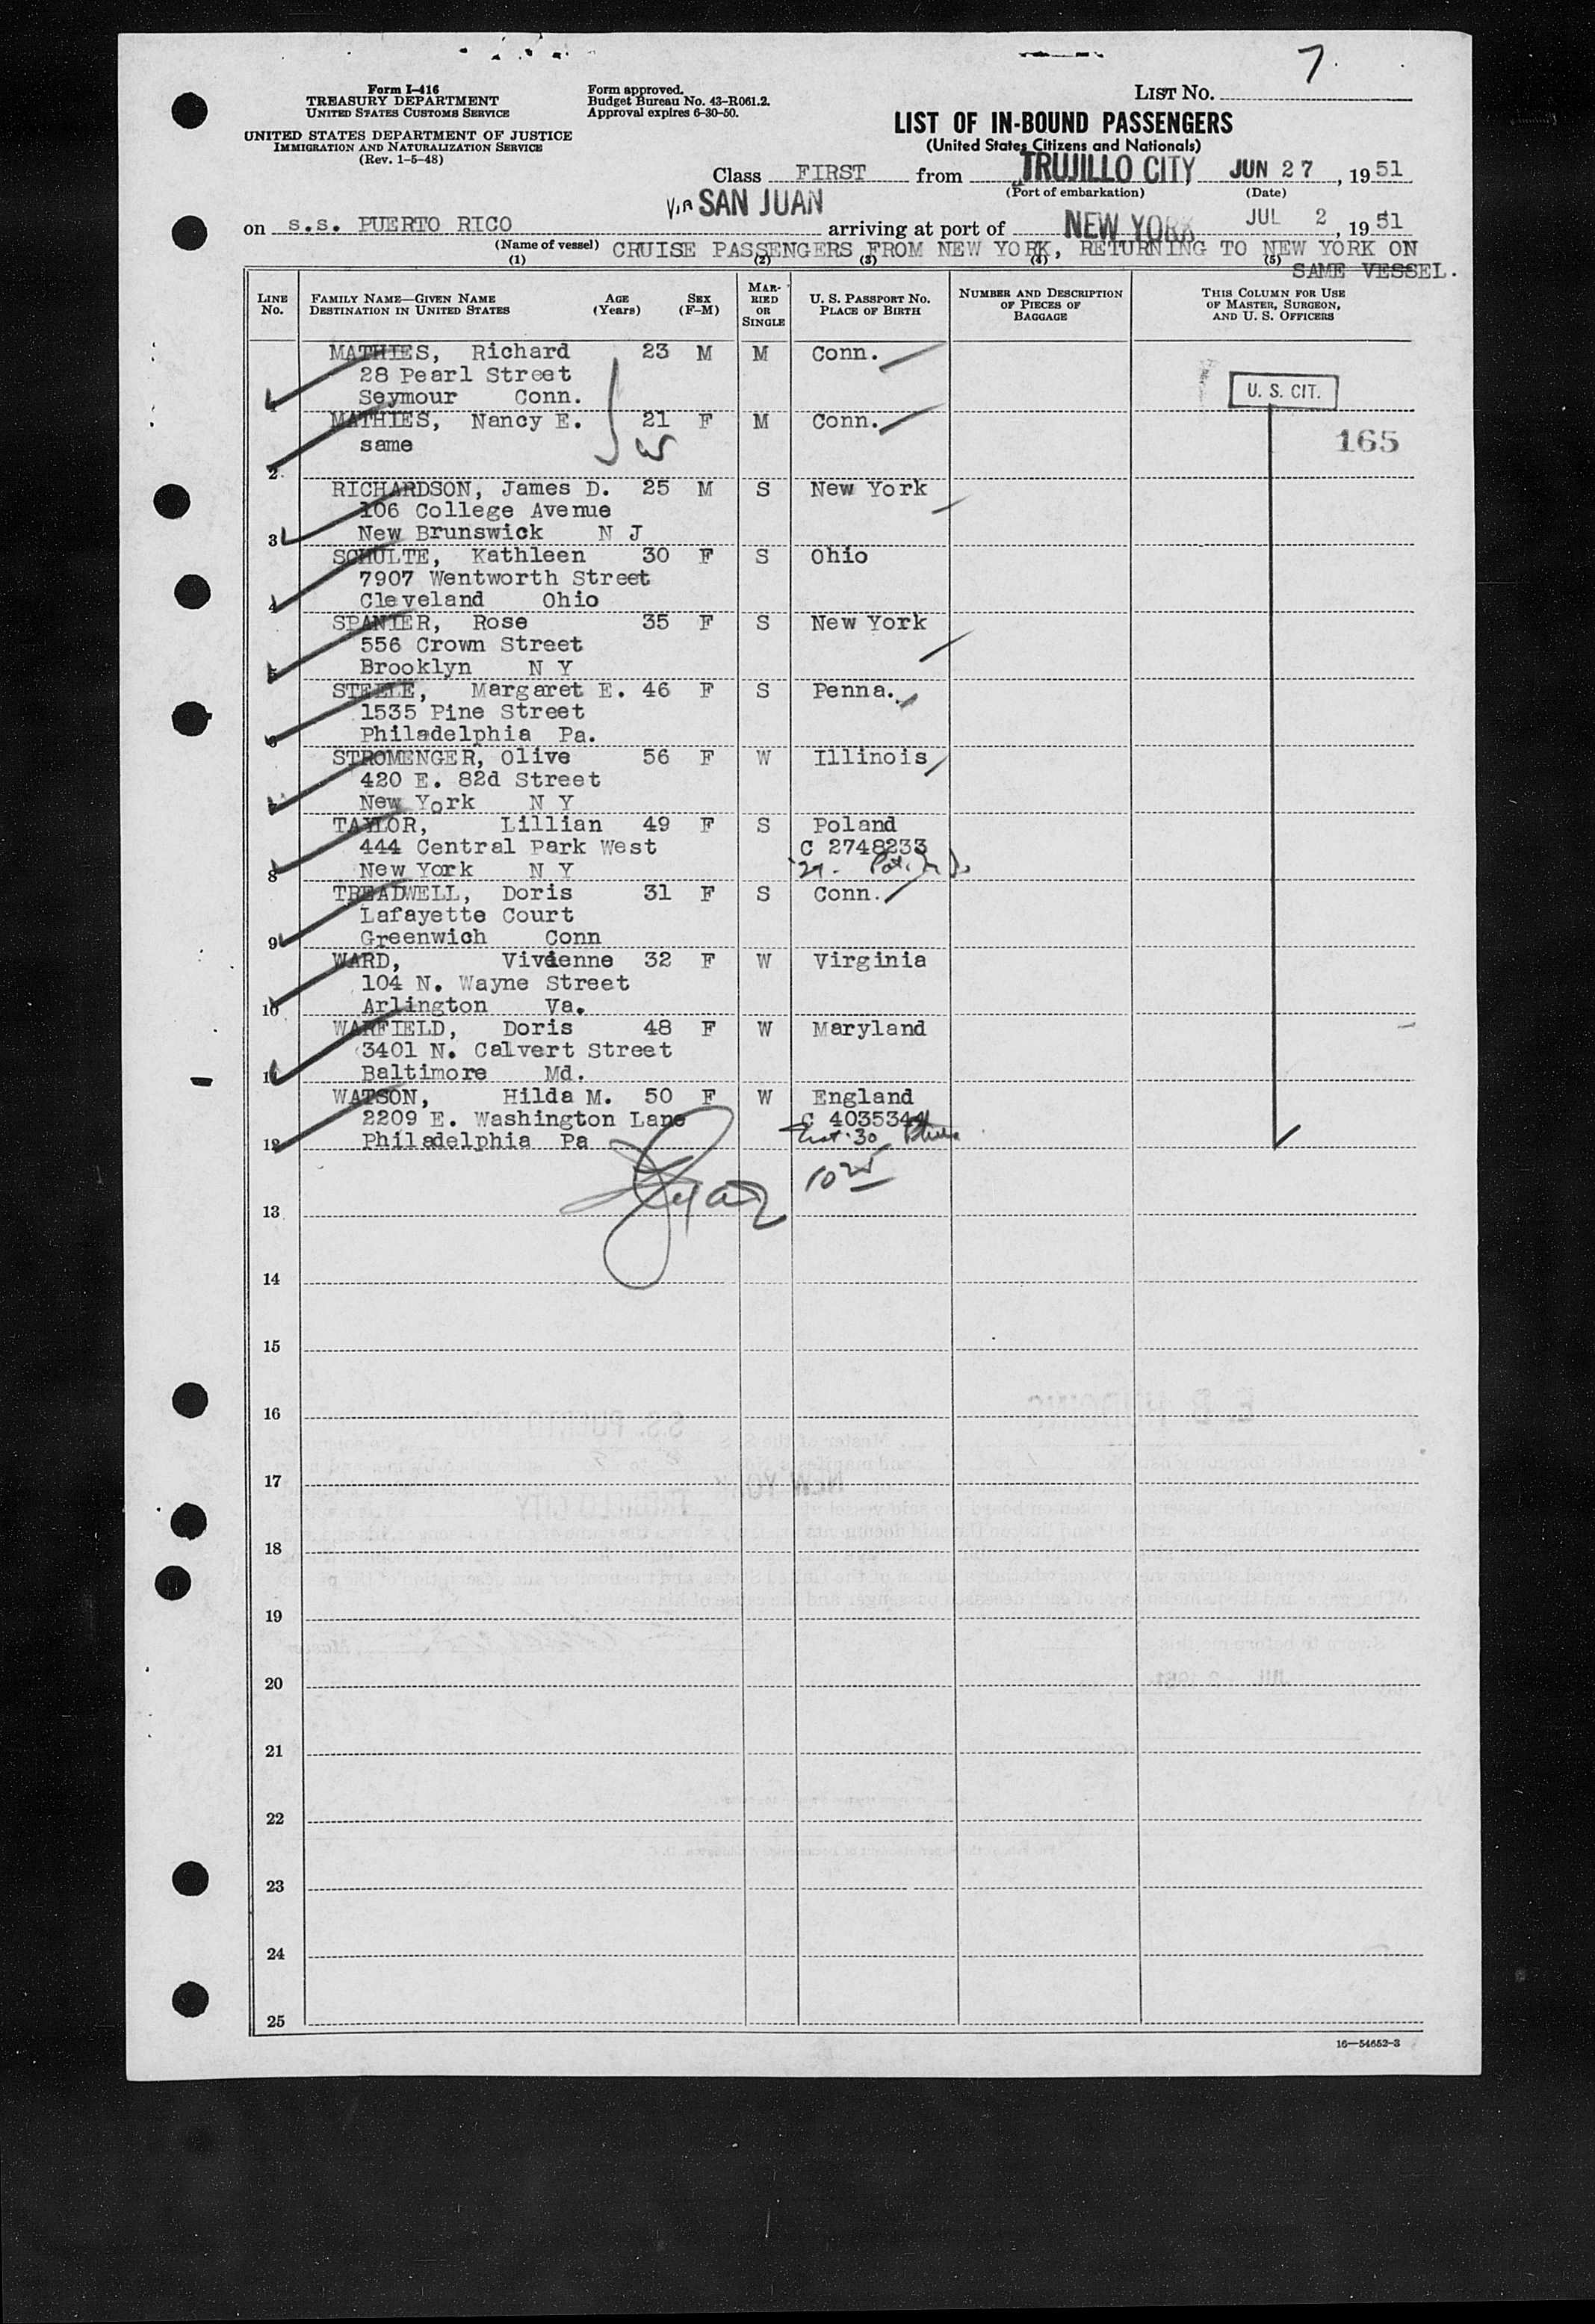 7.
Form I-416
TREASURY DEPARTMENT
UNITED STATES CUSTOMS SERVICE
UNITED STATES DEPARTMENT OF JUSTICE
IMMIGRATION AND NATURALIZATION SERVICE
(Rev. 1-5-48)
Form approved.
Budget Bureau No. 43-R061.2.
Approval expires 6-30-50.
LIST NO.
LIST OF IN-BOUND PASSENGERS
(United States Citizens and Nationals)
Class FIRST from TRUJILLO CITY JUN 27, 1951
(Port of embarkation) (Date)
VIA SAN JUAN
on S.S. PUERTO RICO arriving at port of NEW YORK JUL 2, 1951
(Name of vessel) CRUISE PASSENGERS FROM NEW YORK, RETURNING TO NEW YORK ON
SAME VESSEL.
(1) (2) (3) (4) (5)
LINE NO. FAMILY NAME—GIVEN NAME DESTINATION IN UNITED STATES AGE (Years) SEX (F-M) MARRIED OR SINGLE U. S. PASSPORT NO. PLACE OF BIRTH NUMBER AND DESCRIPTION OF PIECES OF BAGGAGE THIS COLUMN FOR USE OF MASTER, SURGEON, AND U. S. OFFICERS
MATHIES, Richard 23 M M Conn.
28 Pearl Street
Seymour Conn.
U. S. CIT.
MATHIES, Nancy E. 21 F M Conn.
same
165
2
RICHARDSON, James D. 25 M S New York
106 College Avenue
3 New Brunswick N J
SCHULTE, Kathleen 30 F S Ohio
7907 Wentworth Street
4 Cleveland Ohio
SPANIER, Rose 35 F S New York
556 Crown Street
5 Brooklyn N Y
STEELE, Margaret E. 46 F S Penna.
1535 Pine Street
6 Philadelphia Pa.
STROMENGER, Olive 56 F W Illinois
420 E. 82d Street
7 New York N Y
TAYLOR, Lillian 49 F S Poland
444 Central Park West C 2748233
8 New York N Y
TREADWELL, Doris 31 F S Conn.
Lafayette Court
9 Greenwich Conn
WARD, Vivienne 32 F W Virginia
104 N. Wayne Street
10 Arlington Va.
WARFIELD, Doris 48 F W Maryland
3401 N. Calvert Street
11 Baltimore Md.
WATSON, Hilda M. 50 F W England
2209 E. Washington Lane C 4035344
12 Philadelphia Pa
10 25
13
14
15
16
17
18
19
20
21
22
23
24
25
16—54652-3